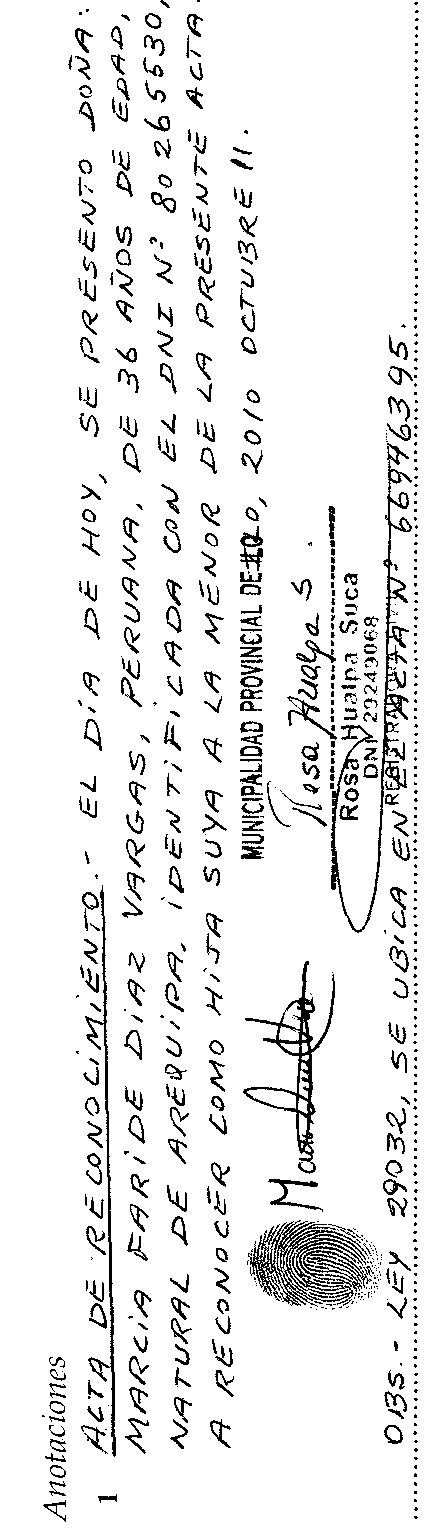 Anotaciones
1 ACTA DE RECONOCIMIENTO.- EL DÍA DE HOY, SE PRESENTO DOÑA:
MARCIA FARIDE DIAZ VARGAS, PERUANA, DE 36 AÑOS DE EDAD,
NATURAL DE AREQUIPA, IDENTIFICADA CON EL DNI Nº 80265530,
A RECONOCER COMO HIJA SUYA A LA MENOR DE LA PRESENTE ACTA.
MUNICIPALIDAD PROVINCIAL DE ILO, 2010 OCTUBRE 11.
Rosa Hualpa S.
Rosa Hualpa Suca
DNI 29249068
OBS.- LEY 29032, SE UBICA EN EL ACTA Nº 66946395.